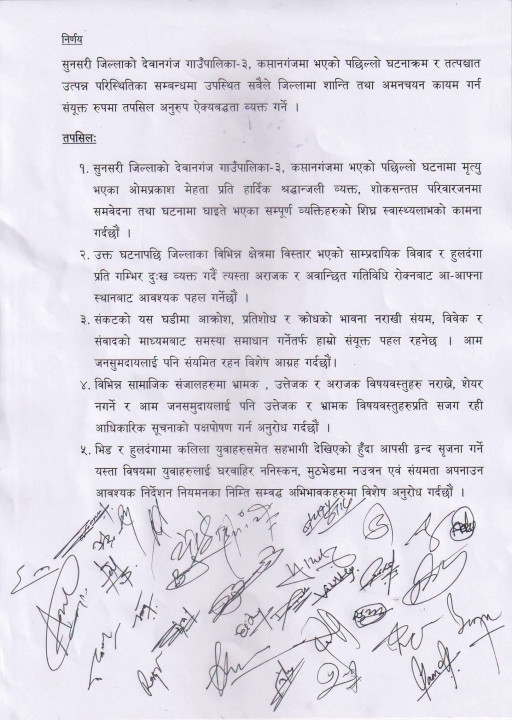 निर्णय
सुनसरी जिल्लाको देवानगंज गाउँपालिका-३, कप्तानगंजमा भएको पछिल्लो घटनाक्रम र तत्पश्चात
उत्पन्न परिस्थितिका सम्बन्धमा उपस्थित सबैले जिल्लामा शान्ति तथा अमनचयन कायम गर्न
संयूक्त रुपमा तपसिल अनुरुप ऐक्यबद्धता व्यक्त गर्ने ।
तपसिलः
१. सुनसरी जिल्लाको देवानगंज गाउँपालिका-३, कप्तानगंजमा भएको पछिल्लो घटनामा मृत्यु
भएका ओमप्रकाश मेहता प्रति हार्दिक श्रद्धान्जली व्यक्त, शोकसन्तप्त परिवारजनमा
समवेदना तथा घटनामा घाइते भएका सम्पूर्ण व्यक्तिहरुको शिघ्र स्वास्थ्यलाभको कामना
गर्दछौं ।
२. उक्त घटनापछि जिल्लाका विभिन्न क्षेत्रमा विस्तार भएको साम्प्रदायिक विवाद र हुलदंगा
प्रति गम्भिर दुःख व्यक्त गर्दै त्यस्ता अराजक र अवान्छित गतिविधि रोक्नबाट आ-आफ्ना
स्थानबाट आवश्यक पहल गर्नेछौं ।
३. संकटको यस घडीमा आक्रोश, प्रतिशोध र क्रोधको भावना नराखी संयम, विवेक र
संवादको माध्यमबाट समस्या समाधान गर्नेतर्फ हाम्रो संयूक्त पहल रहनेछ । आम
जनसुमदायलाई पनि संयमित रहन विशेष आग्रह गर्दछौं।
४. विभिन्न सामाजिक संजालहरुमा भ्रामक , उत्तेजक र अराजक विषयवस्तुहरु नराख्ने, शेयर
नगर्ने र आम जनसमुदायलाई पनि उत्तेजक र भ्रामक विषयवस्तुहरुप्रति सजग रही
आधिकारिक सूचनाको पक्षपोषण गर्न अनुरोध गर्दछौं ।
५. भिड र हुलदंगामा कलिला युवाहरुसमेत सहभागी देखिएको हुँदा आपसी द्वन्द सृजना गर्ने
यस्ता विषयमा युवाहरुलाई घरवाहिर ननिस्कन, मुठभेडमा नउत्रन एवं संयमता अपनाउन
आवश्यक निर्देशन नियमनका निम्ति सम्वद्ध अभिभावकहरुमा विशेष अनुरोध गर्दछौं ।